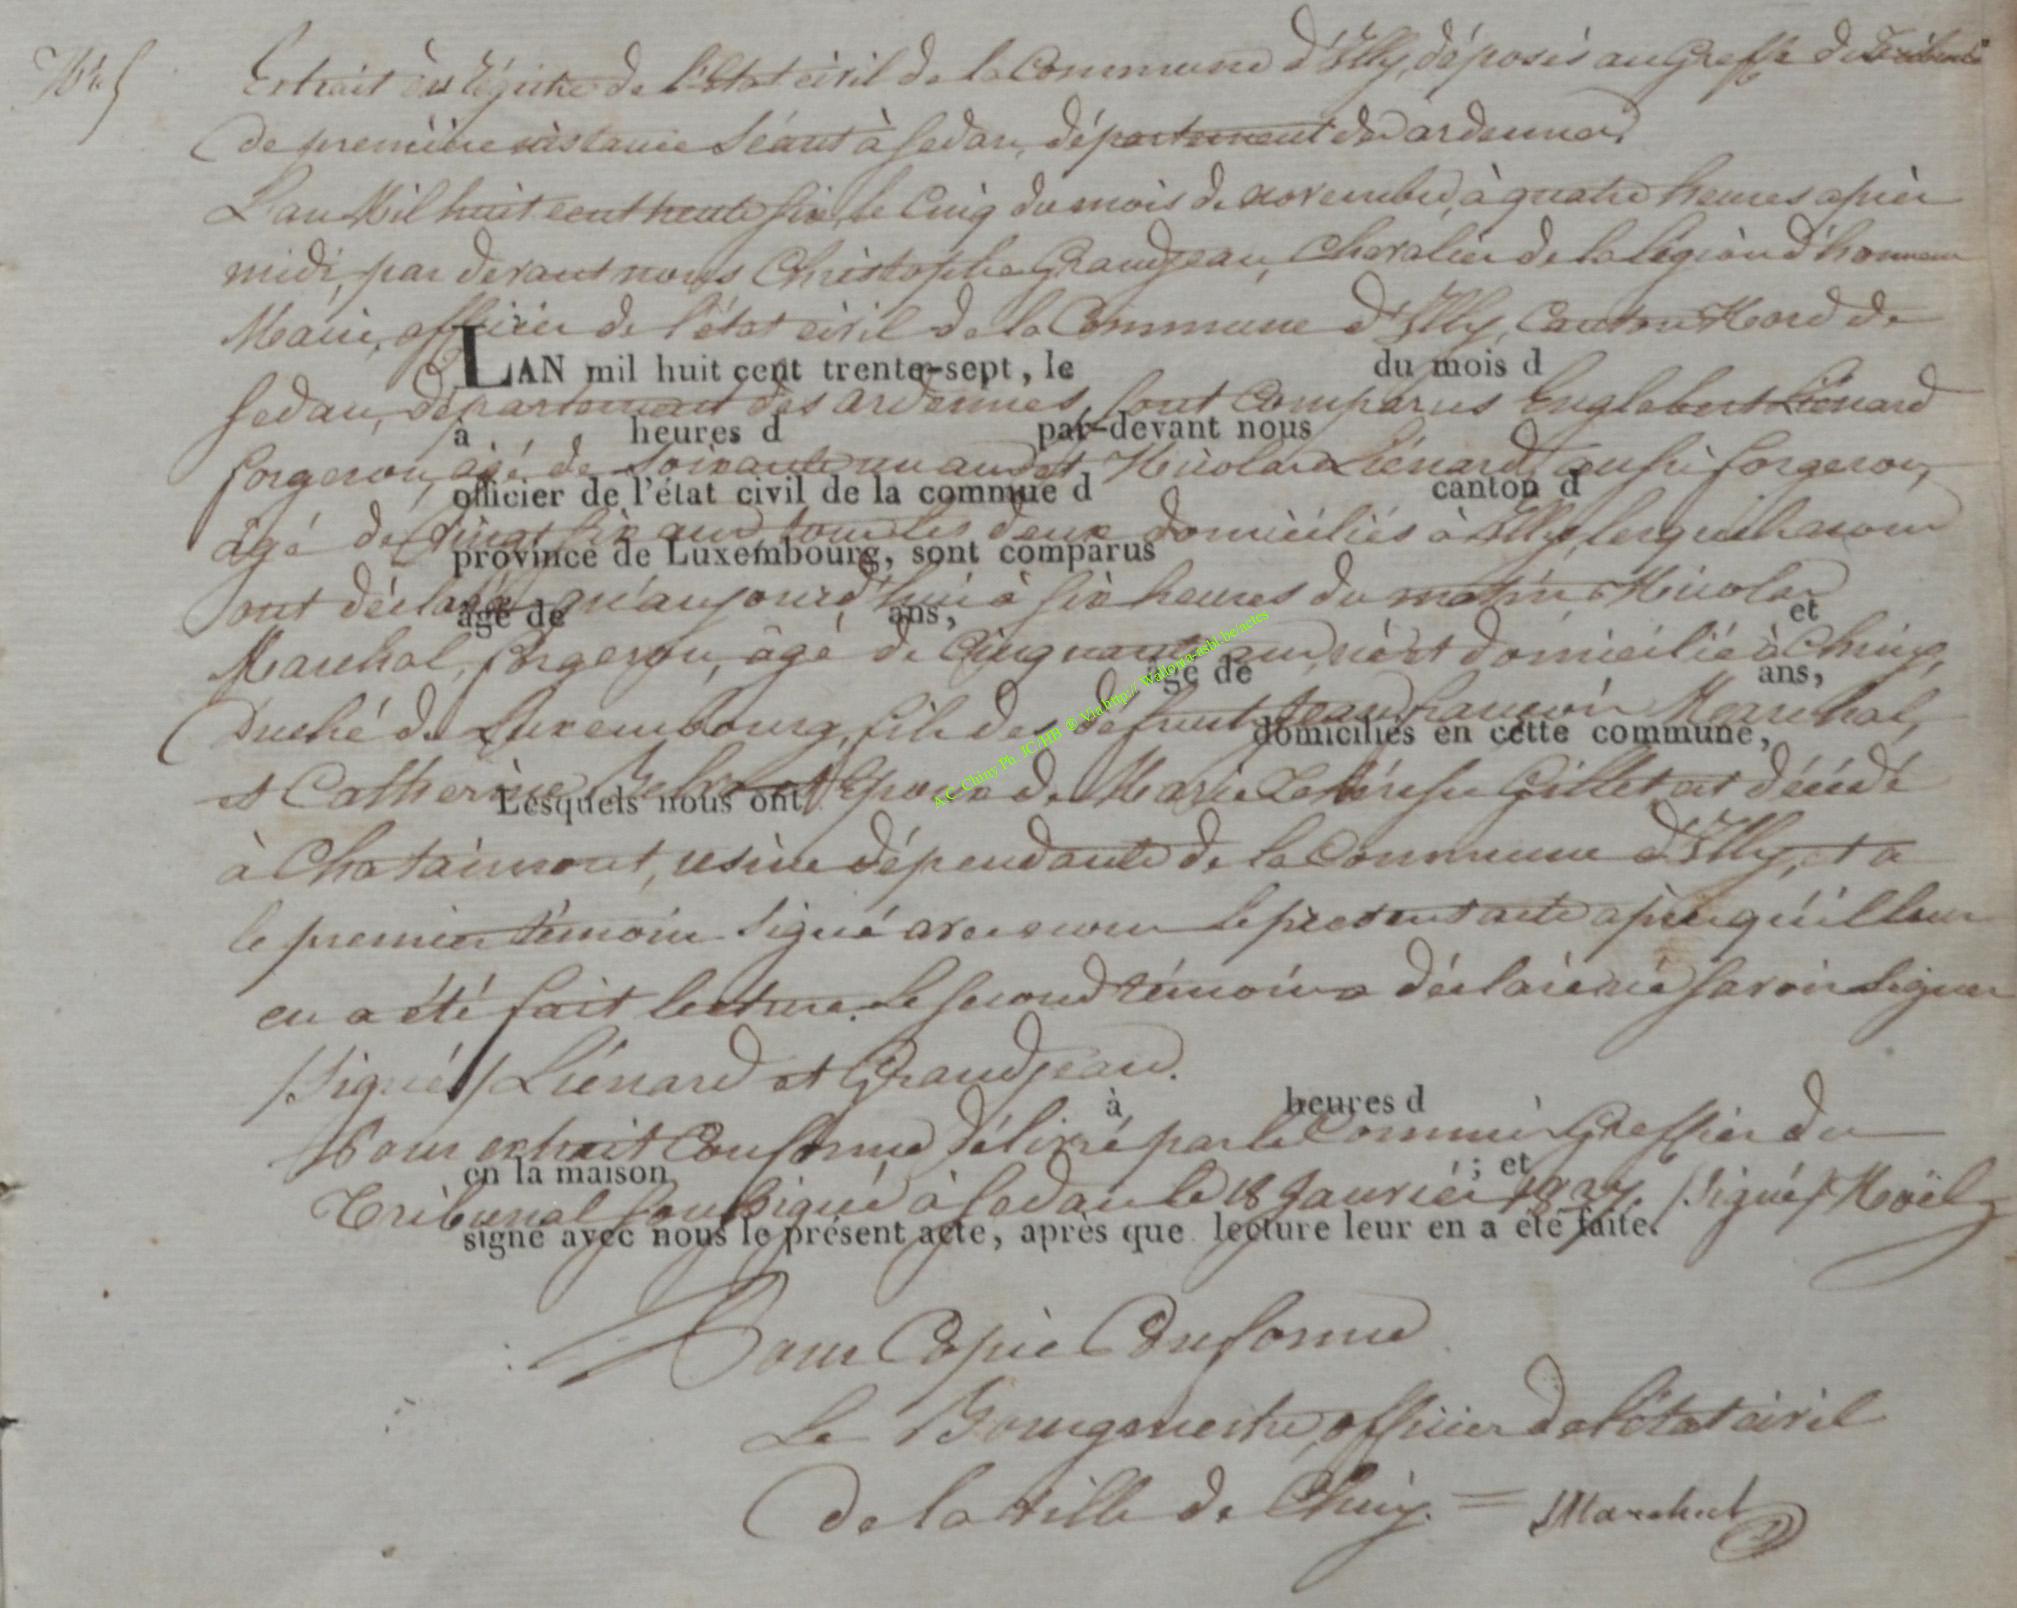 N° 5
Extrait du régistre de l'état civil de la Commune d'Illy, déposés au Greffe du Tribunal
de première instance séant à Sedan, département des ardennes
L'an Mil huit cent trente six, le Cinq du mois de novembre, à quatre heures après
midi, par devant nous Christophe Grandjean, Chevalier de la légion d'honneur
Maire, officier de l'état civil de la Commune d'Illy, Canton Nord de
LAN mil huit cent trente-sept, le du mois d
Sedan, département des ardennes, sont Comparus Englebert Liénard
à heures d par-devant nous
forgeron, agé de soixante un ans et Nicolas Liénard, aussi forgeron,
officier de l'état civil de la commue d canton d
âgé de vingt six ans, tous les deux domiciliés à Illy, lesquels nous
province de Luxembourg, sont comparus
ont déclaré qu'aujourd'hui à six heures du matin, Nicolas
âgé de ans, et
Marchal, forgeron, âgé de Cinquante ans, né et domicilié à Chiny,
âgé de ans,
Duché de Luxembourg, fils des défunts Jean françois Marchal,
domiciliés en cette commune,
et Catherine Epoux de Marie Thérèse Gillet est décédé
Lesquels nous ont
à Chataimont, usine dépendante de la Commune d'Illy, et a
le premier témoin signé avec nous le présent acte après qu'il leur
en a été fait lecture. Le second témoin a déclaré ne savoir signer
/Signé/ Liénard et Grandjean.
à heures d
Pour extrait Conforme délivré par le Commis Greffier du
en la maison ; et
Tribunal soussigné à Sedan le 18 Janvier 1837. /Signé/ Noël
signé avec nous le présent acte, après que lecture leur en a été faite.
Pour Copie Conforme
Le Bourgmestre, officier de l'état civil
de la ville de Chiny. = Marchal
A.C. Chiny Ph. JC/HB © Via http://Wallonia-asbl.be/actes